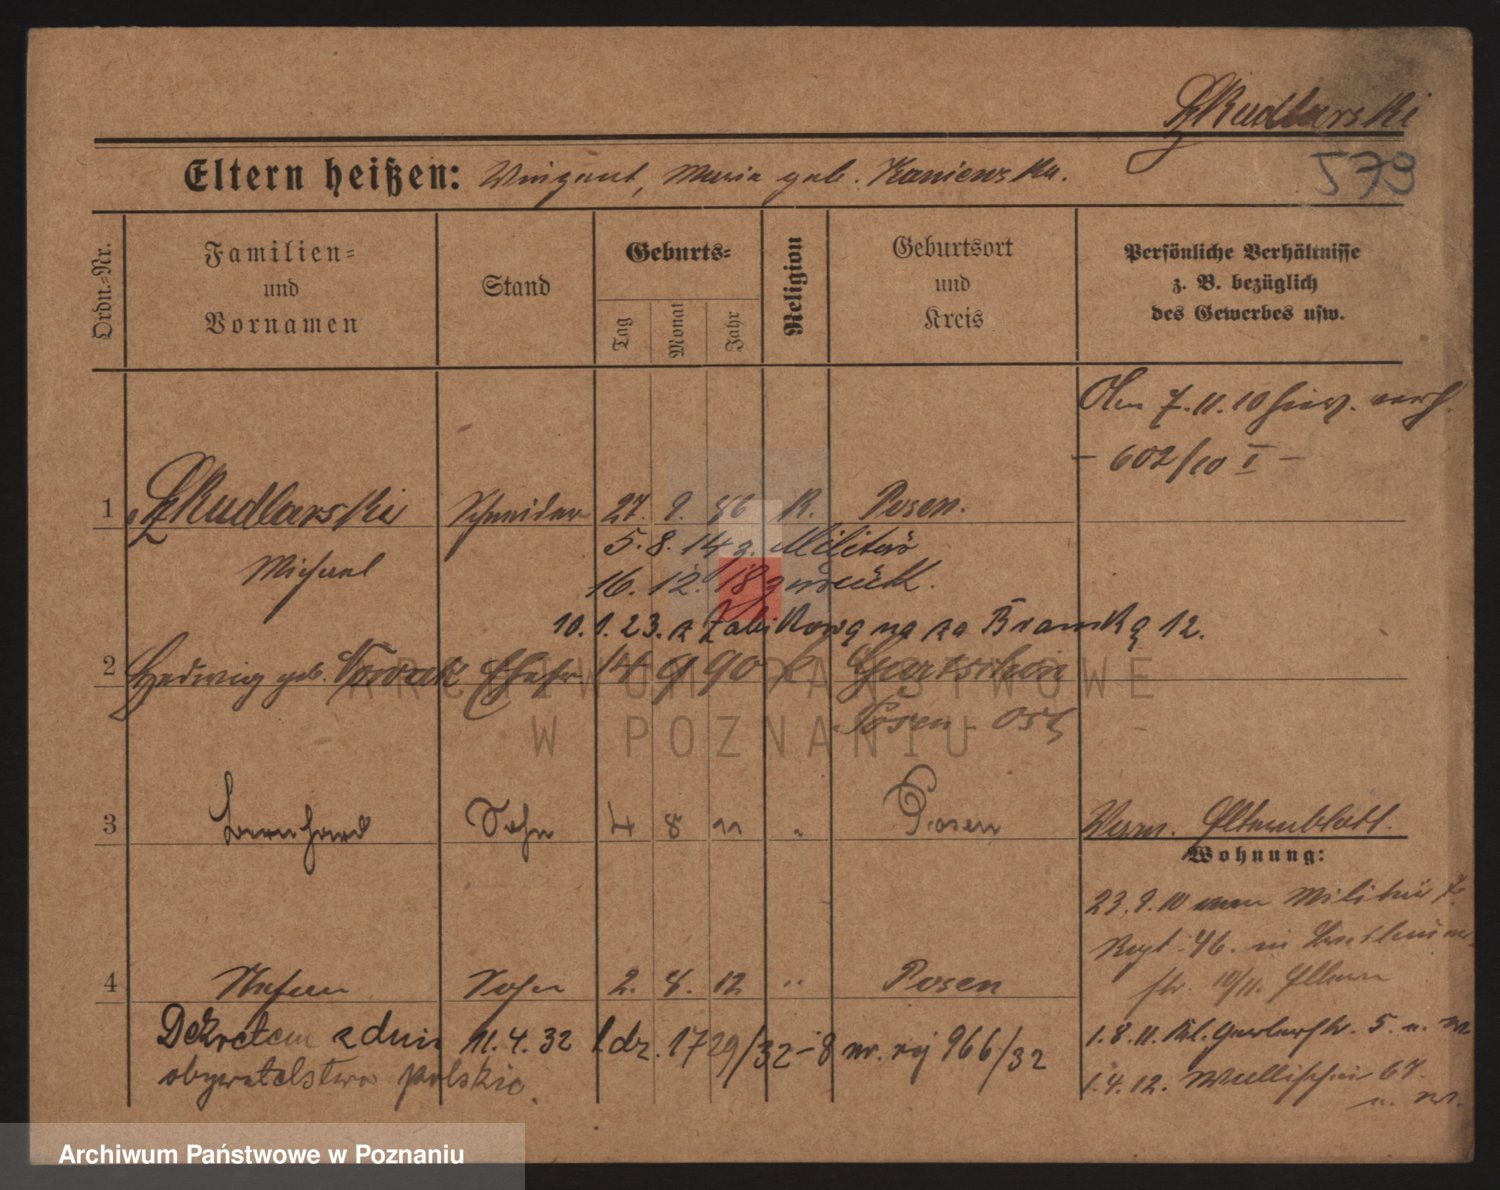 Szkudlarski
573
Eltern heißen: Winzent, Maria geb. Kanienska.
Ordn.-Nr.
Familien- und Vornamen
Stand
Geburts-
Tag
Monat
Jahr
Religion
Geburtsort und Kreis
Persönliche Verhältnisse
z. B. bezüglich
des Gewerbes usw.
Am 7.11.10 hier. verh.
- 602/10 I -
1 Szkudlarski Schneider 27. 9. 86 K. Posen.
Michael
5. 8. 14 z. Militär
16. 12. 18 zurück.
10. 1. 23. z Żabikowa na za Bramką 12.
2 Hedwig geb. Nowak Ehefr. 14 9 90 k
Posen-Ost
3 Bernhard Sohn 4 8 11 " Posen
Verm. Elternblatt.
Wohnung:
23. 9. 10 vom Militär
Regt. 46. in
str. 10/11. Eltern
4 Stefan Sohn 2. 8. 12 " Posen
Dekretem z dnia 11. 4. 32 l.dz. 1729/32-8 nr. rej 966/32
obywatelstwo polskie.
1. 8. 11. Kl. Gerberstr. 5. u. Fr.
1. 4. 12. Wallischei 67.
ARCHIWUM PAŃSTWOWE
W POZNANIU
Archiwum Państwowe w Poznaniu